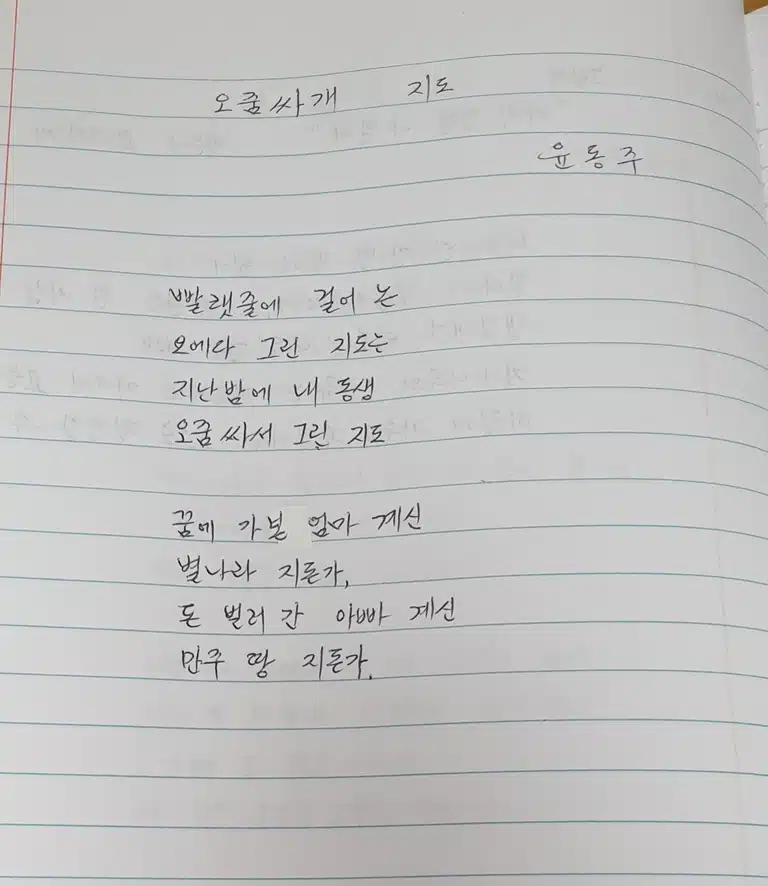 오줌싸개 지도
윤동주
빨랫줄에 걸어 논
요에다 그린 지도는
지난밤에 내 동생
오줌 싸서 그린 지도
꿈에 가본 엄마 계신
별나라 지돈가,
돈 벌러 간 아빠 계신
만주 땅 지돈가.